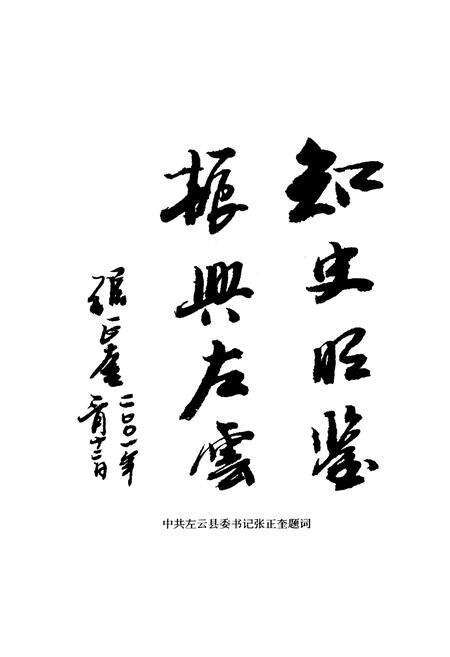 知史明鉴
振興左雲
张正奎
二〇〇一年
月十二日
中共左云县委书记张正奎题词